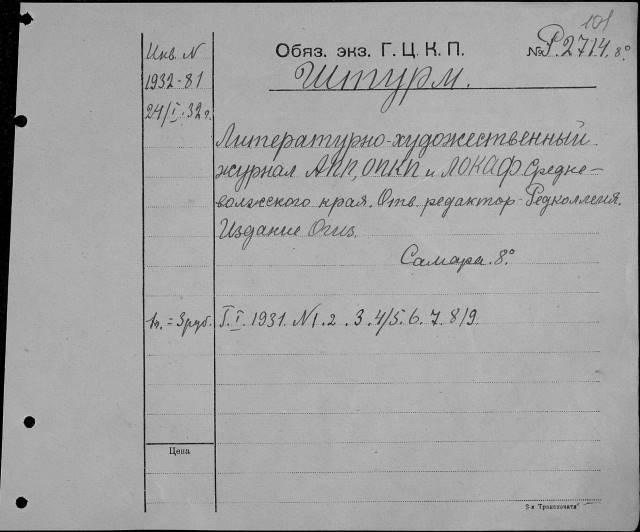 101
Инв. N
Обяз. экз. Г. Ц. К. П.
№ Р.2714. 8°
1932-81
Штурм.
24/I.32 г.
Литературно-художественный
журнал АПП, ОПКП и ЛОКАФ Средне-
волжского края. Отв. редактор - Редколлегия.
Издание Огиз.
Самара. 8°
= 3 руб.
Г. I. 1931. N 1. 2. 3. 4/5. 6. 7. 8/9.
Цена